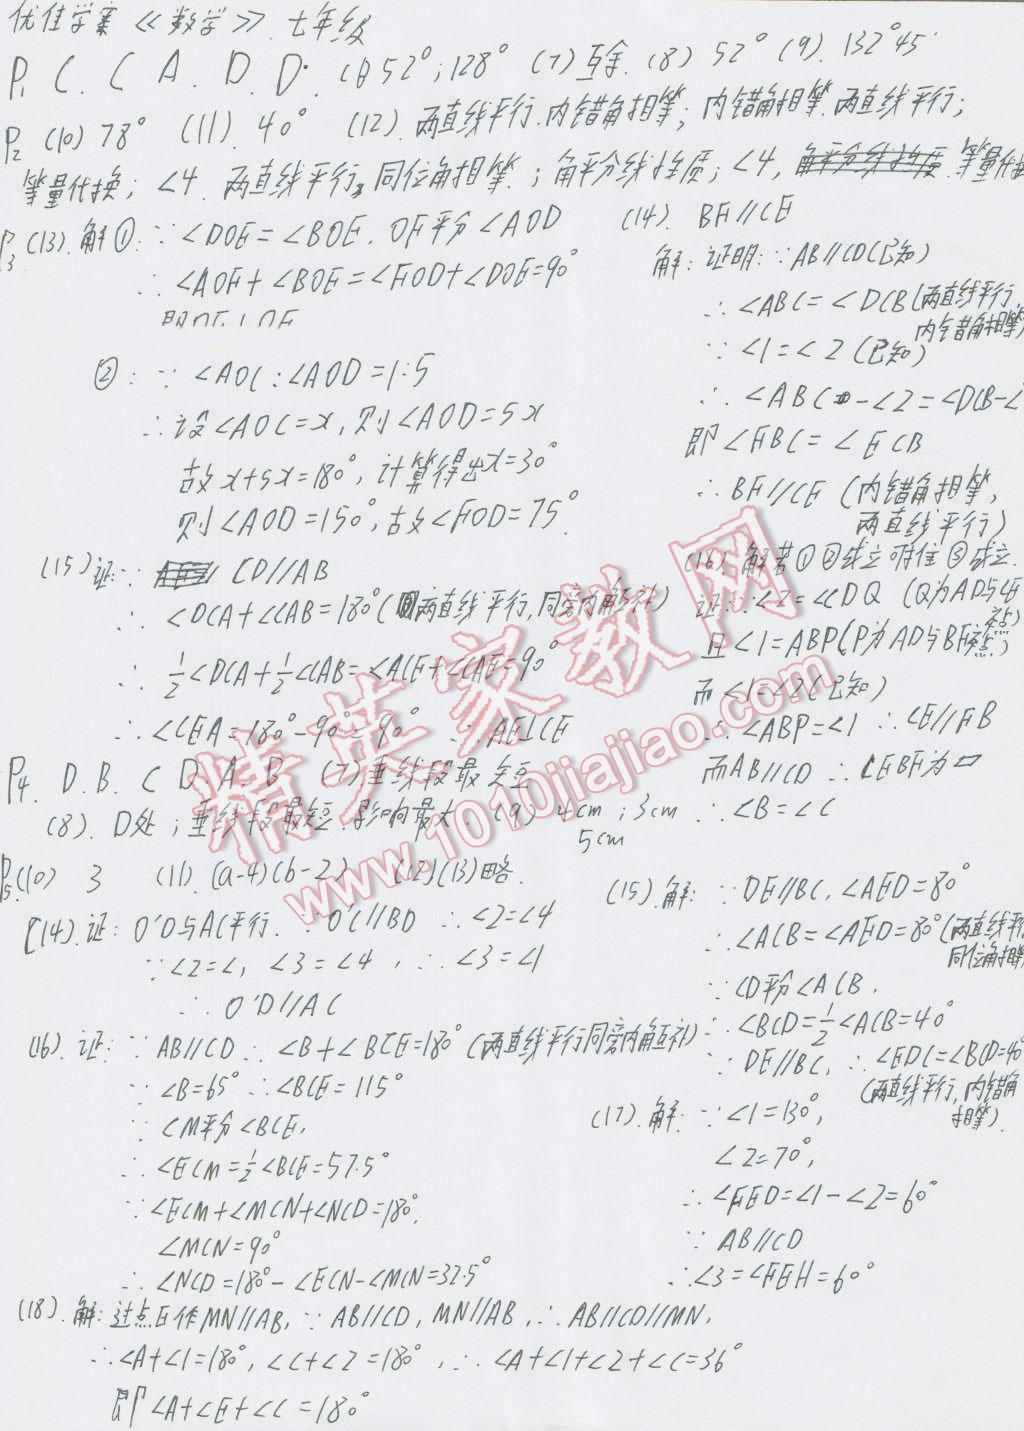 优佳学案《数学》.七年级
P1 C. C A. D. D. (6) 52°; 128° (7) 互余. (8) 52° (9). 132°45′
P2 (10) 78° (11). 40° (12). 两直线平行.内错角相等; 内错角相等.两直线平行;
等量代换; ∠4. 两直线平行, 同位角相等.; 角平分线性质; ∠4, 等量代换
P3 (13). 解①: ∵ ∠DOE=∠BOE. OF平分∠AOD
∴ ∠AOF+∠BOE=∠FOD+∠DOE=90°
②: ∵ ∠AOC:∠AOD=1:5
∴设∠AOC=x, 则∠AOD=5x
故x+5x=180°, 计算得出x=30°
则∠AOD=150°, 故∠FOD=75°.
(14). BF//CE
解: 证明: ∵AB//CD(已知)
∴ ∠ABC=∠DCB(两直线平行,
内错角相等)
∵ ∠1=∠2(已知)
∴ ∠ABC-∠2=∠DCB-∠
即∠FBC=∠ECB
∴ BF//CE (内错角相等,
两直线平行)
(15)证: ∵ CD//AB
∴ ∠DCA+∠CAB=180°(两直线平行,同旁内角互补)
∴ ½∠DCA+½∠CAB=∠ACE+∠CAE=90°
∴ ∠CEA=180°-90°=90° ∴ AE⊥CE
(16). 解若①②成立 可住③成立.
证∵∠2=∠CDQ (Q为AD与CE
交点)
且∠1=ABP(P为AD与BF交点)
而∠1=∠2(已知)
∴ ∠ABP=∠1 ∴CE//FB
而AB//CD ∴CEBF为▱
∴∠B=∠C
P4. D. B. C D. A. B (7)垂线段最短
(8). D处; 垂线段最短.影响最大. (9) 4cm; 3cm
5cm
P5(10) 3 (11). (a-4)(b-2) (12)(13)略.
(14).证: O′D与AC平行. ∵O′C//BD ∴∠2=∠4
∵∠2=∠, ∠3=∠4, ∴∠3=∠1
∴ O′D//AC
(15).解: ∵DE//BC, ∠AED=80°
∴∠ACB=∠AED=80°(两直线平行
同位角相等
∵CD平分∠ACB.
∴∠BCD=½∠ACB=40°
∵ DE//BC, ∴∠EDC=∠BCD=40°
(两直线平行,内错角
相等).
(16). 证: ∵ AB//CD ∴ ∠B+∠BCE=180°(两直线平行同旁内角互补)
∵ ∠B=65° ∴∠BCE=115°
∵ CM平分∠BCE,
∴ ∠ECM=½∠BCE=57.5°
∵∠ECM+∠MCN+∠NCD=180°,
∠MCN=90°
∴ ∠NCD=180°-∠ECN-∠MCN=32.5°
(17).解: ∵∠1=130°,
∠2=70°,
∴ ∠FED=∠1-∠2=60°
∵ AB//CD
∴∠3=∠FEH=60°
(18).解: 过点E作MN//AB, ∵ AB//CD, MN//AB, ∴ AB//CD//MN,
∴∠A+∠1=180°, ∠C+∠2=180°, ∴ ∠A+∠1+∠2+∠C=36°
即∠A+∠E+∠C=180°
精英家教网
www.1010jiajiao.com